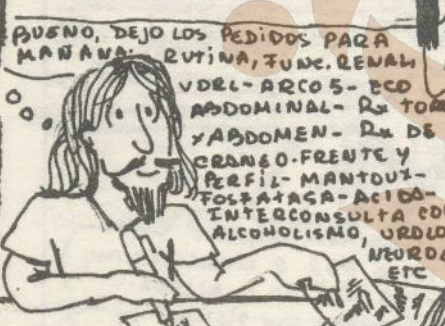 BUENO, DEJO LOS PEDIDOS PARA
MAÑANA: RUTINA, FUNC. RENAL,
VDRL - ARCO 5 - ECO
ABDOMINAL - Rx TOR
Y ABDOMEN - Rx DE
CRANEO. FRENTE Y
PERFIL - MANTOUX -
FOSFATASA - ACIDA -
INTERCONSULTA CO
ALCOHOLISMO, UROLO
NEUROL
ETC